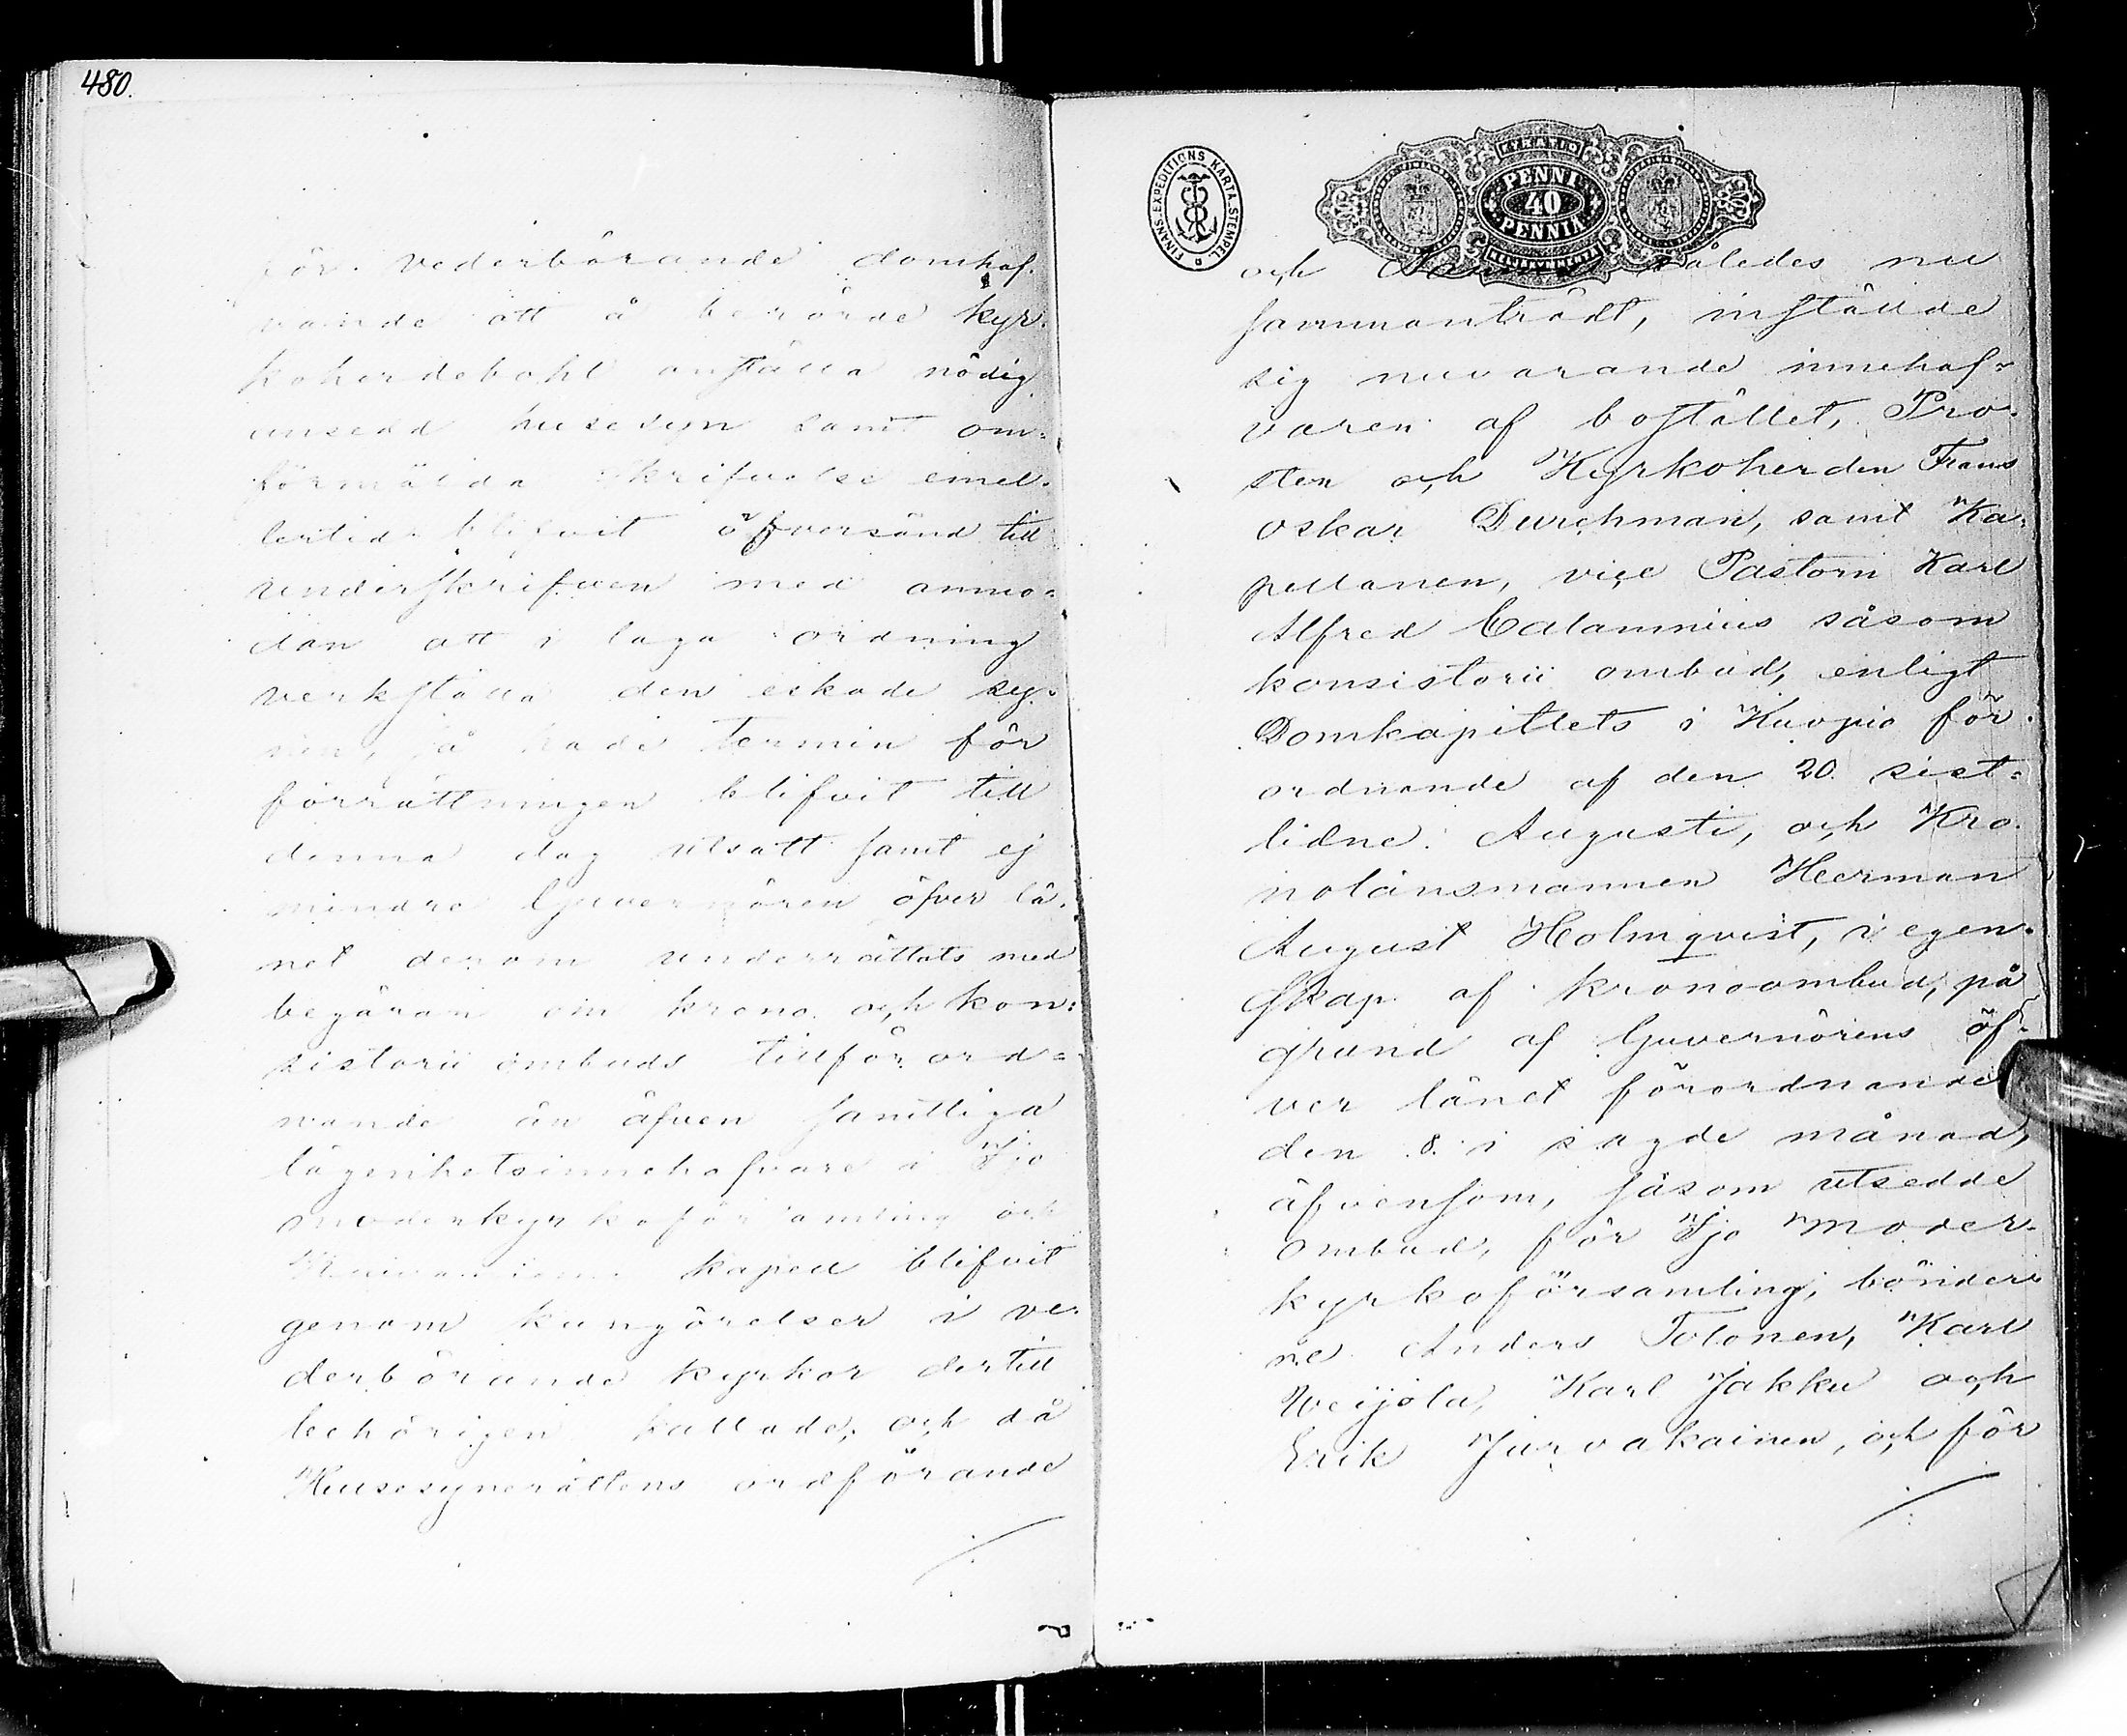 480.
för vederbörande domhaf-
vande att å berörde kyr-
koherdebohl anställa nödig
ansedd husesyn samt om-
förmälda skrifvelse emel-
lertid blifvit öfversänd till
underskrifven med anmo-
dan att i laga ordning
verkställa den eskade sy-
nen, så hade termin för
förrättningen blifvit till
denna dag utsatt samt ej
mindre Guvernören öfver lä-
net derom underrättats med
begäran om krono och kon-
sistorii ombuds tillförord-
nande än äfven samtliga
lägenhetsinnehafvare i Ijo
moderkyrkoförsamling och
kapell blifvit
genom kungörelser i ve-
derbörande kyrkor dertill
behörigen kallade, och då
Husesynerättens ordförande
FINANS.EXPEDITIONS KARTA.STEMPEL
PENNI
40
PENNIÄ
och således nu
sammanträdt, inställde
sig nuvarande innehaf-
varen af bostället, Pro-
sten och Kyrkoherden Frans
Oskar Durchman, samt Ka-
pellanen, vice Pastorn Karl
Alfred Calamnius såsom
konsistorii ombud, enligt
Domkapitlets i Kuopio för-
ordnande af den 20. sist-
lidne Augusti, och Kro-
nolänsmannen Herman
August Holmqvist, i egen-
skap af kronoombud, på
grund af Guvernörens öf-
ver länet förordnande
den 8. i sagde månad,
äfvensom, såsom utsedde
ombud, för Ijo moder-
kyrkoförsamling, bönder-
ne Anders Tolonen, Karl
Weijola, Karl Jakku och
Erik Jurvakainen, och för